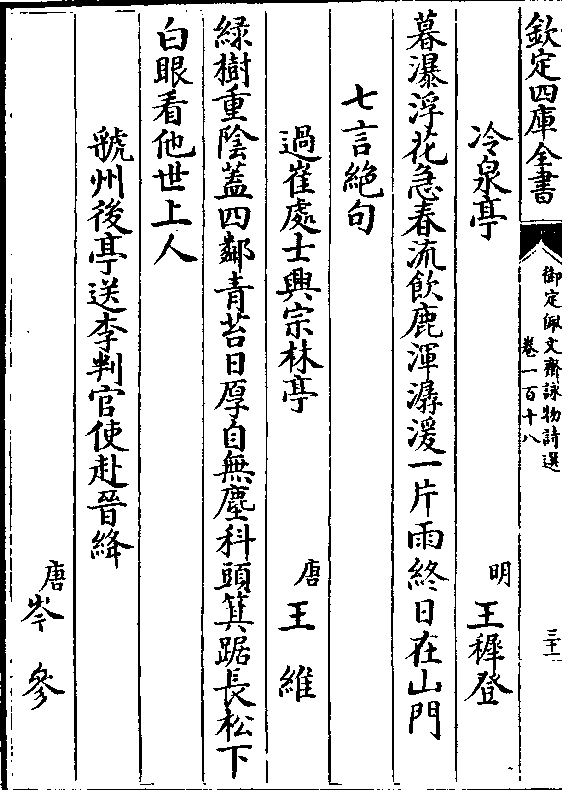 欽定四庫全書
御定佩文齋詠物詩選
卷一百十八
三十一
冷泉亭
明 王穉登
暮瀑浮花急春流飲鹿渾潺湲一片雨終日在山門
七言絶句
過崔處士興宗林亭
唐 王維
緑樹重陰蓋四鄰青苔日厚自無塵科頭箕踞長松下
白眼看他世上人
虢州後亭送李判官使赴晉絳
唐 岑參